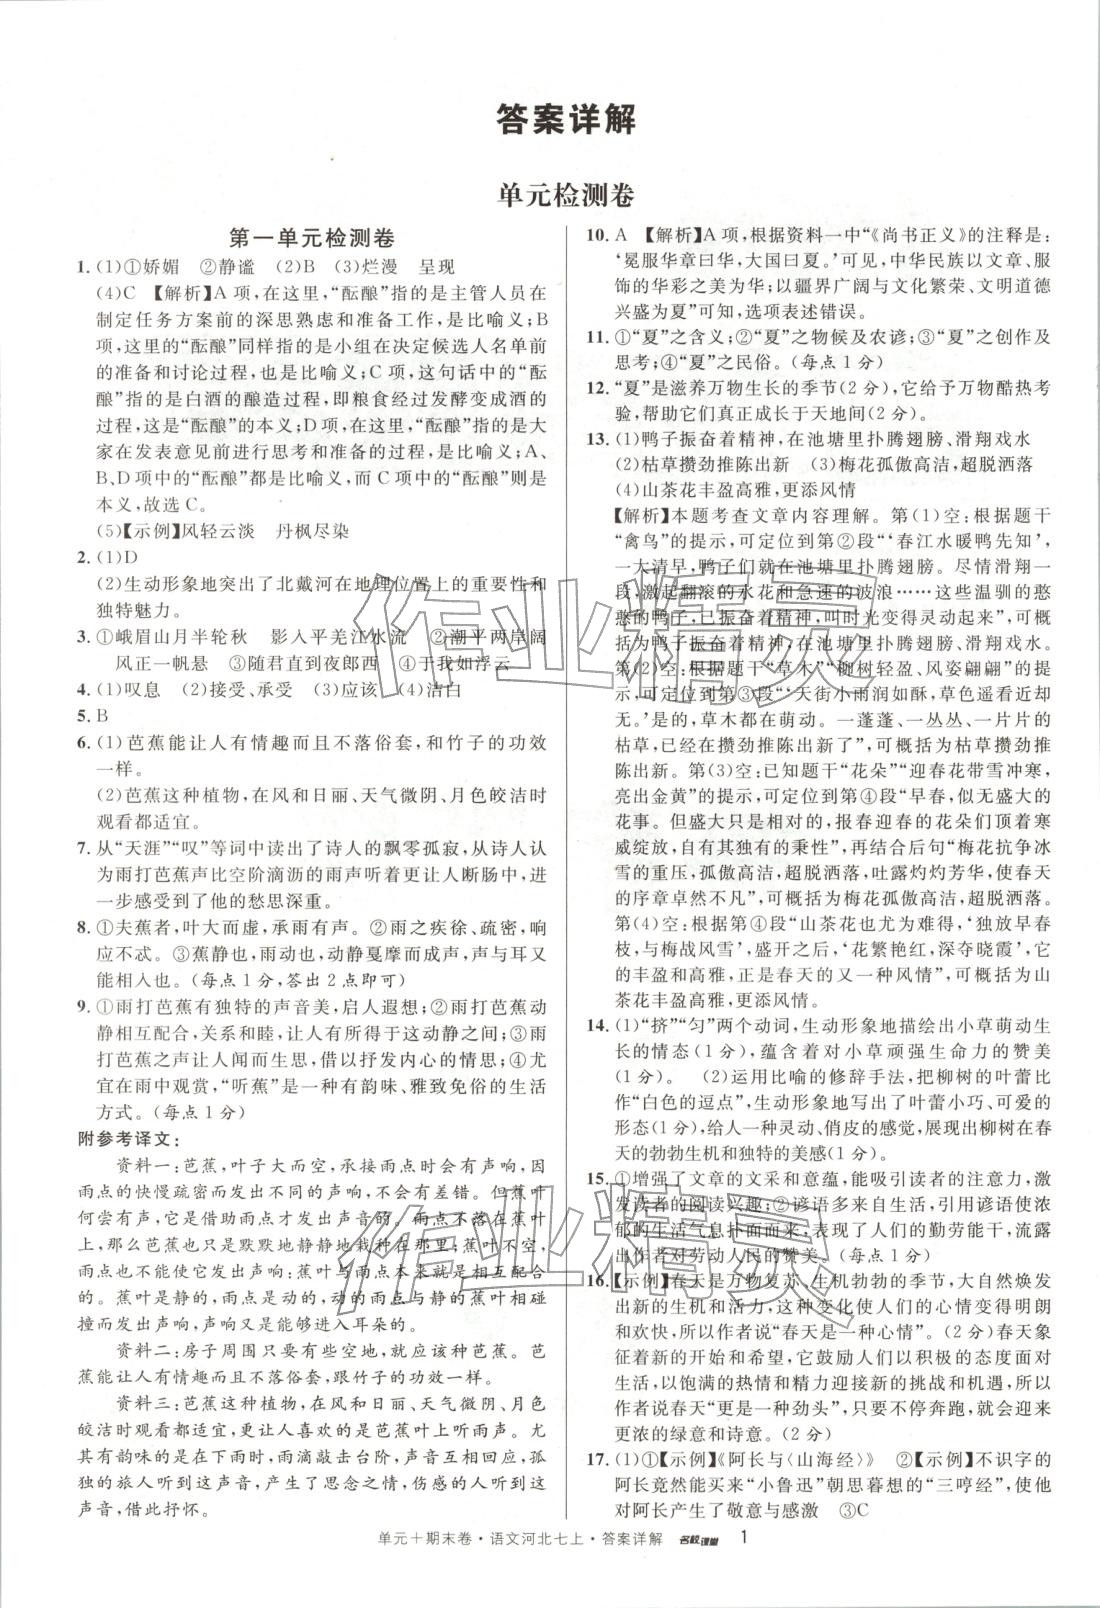 答案详解
单元检测卷
第一单元检测卷
1. (1)①娇媚　②静谧　(2)B　(3)烂漫　呈现
(4)C　【解析】A项，在这里，“酝酿”指的是主管人员在
制定任务方案前的深思熟虑和准备工作，是比喻义；B
项，这里的“酝酿”同样指的是小组在决定候选人名单前
的准备和讨论过程，也是比喻义；C项，这句话中的“酝
酿”指的是白酒的酿造过程，即粮食经过发酵变成酒的
过程，这是“酝酿”的本义；D项，在这里，“酝酿”指的是大
家在发表意见前进行思考和准备的过程，是比喻义；A、
B、D项中的“酝酿”都是比喻义，而C项中的“酝酿”则是
本义，故选C。
(5)【示例】风轻云淡　丹枫尽染
2. (1)D
(2)生动形象地突出了北戴河在地理位置上的重要性和
独特魅力。
3. ①峨眉山月半轮秋　影入平羌江水流　②潮平两岸阔
风正一帆悬　③随君直到夜郎西　④于我如浮云
4. (1)叹息　(2)接受、承受　(3)应该　(4)洁白
5. B
6. (1)芭蕉能让人有情趣而且不落俗套，和竹子的功效
一样。
(2)芭蕉这种植物，在风和日丽、天气微阴、月色皎洁时
观看都适宜。
7. 从“天涯”“叹”等词中读出了诗人的飘零孤寂，从诗人认
为雨打芭蕉声比空阶滴沥的雨声听着更让人断肠中，进
一步感受到了他的愁思深重。
8. ①夫蕉者，叶大而虚，承雨有声。②雨之疾徐、疏密，响
应不忒。③蕉静也，雨动也，动静戛摩而成声，声与耳又
能相入也。（每点1分，答出2点即可）
9. ①雨打芭蕉有独特的声音美，启人遐想；②雨打芭蕉动
静相互配合，关系和睦，让人有所得于这动静之间；③雨
打芭蕉之声让人闻而生思，借以抒发内心的情思；④尤
宜在雨中观赏，“听蕉”是一种有韵味、雅致免俗的生活
方式。（每点1分）
附参考译文：
资料一：芭蕉，叶子大而空，承接雨点时会有声响，因
雨点的快慢疏密而发出不同的声响，不会有差错。但蕉叶
何尝有声响，它是借助雨点才发出声音的。雨点不落在蕉叶
上，那么芭蕉也只是默默地静静地栽种在那里；蕉叶不空，雨
点也不能使它发出声响：蕉叶与雨点本来就是相互配合
的。蕉叶是静的，雨点是动的，动的雨点与静的蕉叶相碰
撞而发出声响，声响又能够进入耳朵的。
资料二：房子周围只要有些空地，就应该种芭蕉。芭
蕉能让人有情趣而且不落俗套，跟竹子的功效一样。
资料三：芭蕉这种植物，在风和日丽、天气微阴、月色
皎洁时观看都适宜，但更让人喜欢的是芭蕉叶上听雨声。尤
其有韵味的是在下雨时，雨滴敲击台阶，声音互相回应，孤
独的旅人听到这声音，产生了思念之情，伤感的人听到这
声音，借此抒怀。
10. A　【解析】A项，根据资料一中“《尚书正义》的注释是：
‘冕服华章曰华，大国曰夏。’可见，中华民族以文章、服
饰的华彩之美为华；以疆界广阔与文化繁荣、文明道德
兴盛为夏”可知，选项表述错误。
11. ①“夏”之含义；②“夏”之物候及农谚；③“夏”之创作及
思考；④“夏”之民俗。（每点1分）
12. “夏”是滋养万物生长的季节(2分)，它给予万物酷热考
验，帮助它们真正成长于天地间(2分)。
13. (1)鸭子振奋着精神，在池塘里扑腾翅膀、滑翔戏水
(2)枯草攒劲推陈出新　(3)梅花孤傲高洁，超脱洒落
(4)山茶花丰盈高雅，更添风情
【解析】本题考查文章内容理解。第(1)空：根据题干
“禽鸟”的提示，可定位到第②段“‘春江水暖鸭先知’，
一大清早，鸭子们就在池塘里扑腾翅膀。尽情滑翔一
段，激起翻滚的水花和急速的波浪……这些温驯的憨
憨的鸭子，已振奋着精神，叫时光变得灵动起来”，可概
括为鸭子振奋着精神，在池塘里扑腾翅膀、滑翔戏水。
第(2)空：根据题干“草木”“柳树轻盈、风姿翩翩”的提
示，可定位到第③段“‘天街小雨润如酥，草色遥看近却
无。’是的，草木都在萌动。一蓬蓬、一丛丛、一片片的
枯草，已经在攒劲推陈出新了”，可概括为枯草攒劲推
陈出新。第(3)空：已知题干“花朵”“迎春花带雪冲寒，
亮出金黄”的提示，可定位到第④段“早春，似无盛大的
花事。但盛大只是相对的，报春迎春的花朵们顶着寒
威绽放，自有其独有的秉性”，再结合后句“梅花抗争冰
雪的重压，孤傲高洁，超脱洒落，吐露灼灼芳华，使春天
的序章卓然不凡”，可概括为梅花孤傲高洁，超脱洒落。
第(4)空：根据第④段“山茶花也尤为难得，‘独放早春
枝，与梅战风雪’，盛开之后，‘花繁艳红，深夺晓霞’，它
的丰盈和高雅，正是春天的又一种风情”，可概括为山
茶花丰盈高雅，更添风情。
14. (1)“挤”“匀”两个动词，生动形象地描绘出小草萌动生
长的情态(1分)，蕴含着对小草顽强生命力的赞美
(1分)。　(2)运用比喻的修辞手法，把柳树的叶蕾比
作“白色的逗点”，生动形象地写出了叶蕾小巧、可爱的
形态(1分)，给人一种灵动、俏皮的感觉，展现出柳树在春
天的勃勃生机和独特的美感(1分)。
15. ①增强了文章的文采和意蕴，能吸引读者的注意力，激
发读者的阅读兴趣；②谚语多来自生活，引用谚语使浓
郁的生活气息扑面而来，表现了人们的勤劳能干，流露
出作者对劳动人民的赞美。（每点1分）
16. 【示例】春天是万物复苏、生机勃勃的季节，大自然焕发
出新的生机和活力，这种变化使人们的心情变得明朗
和欢快，所以作者说“春天是一种心情”。(2分)春天象
征着新的开始和希望，它鼓励人们以积极的态度面对生
活，以饱满的热情和精力迎接新的挑战和机遇，所以作
者说春天“更是一种劲头”，只要不停奔跑，就会迎来
更浓的绿意和诗意。(2分)
17. (1)①【示例】《阿长与〈山海经〉》　②【示例】不识字的
阿长竟然能买来“小鲁迅”朝思暮想的“三哼经”，使他
对阿长产生了敬意与感激　③C
单元+期末卷·语文河北七上·答案详解　名校课堂　1
作业精灵
作业精灵